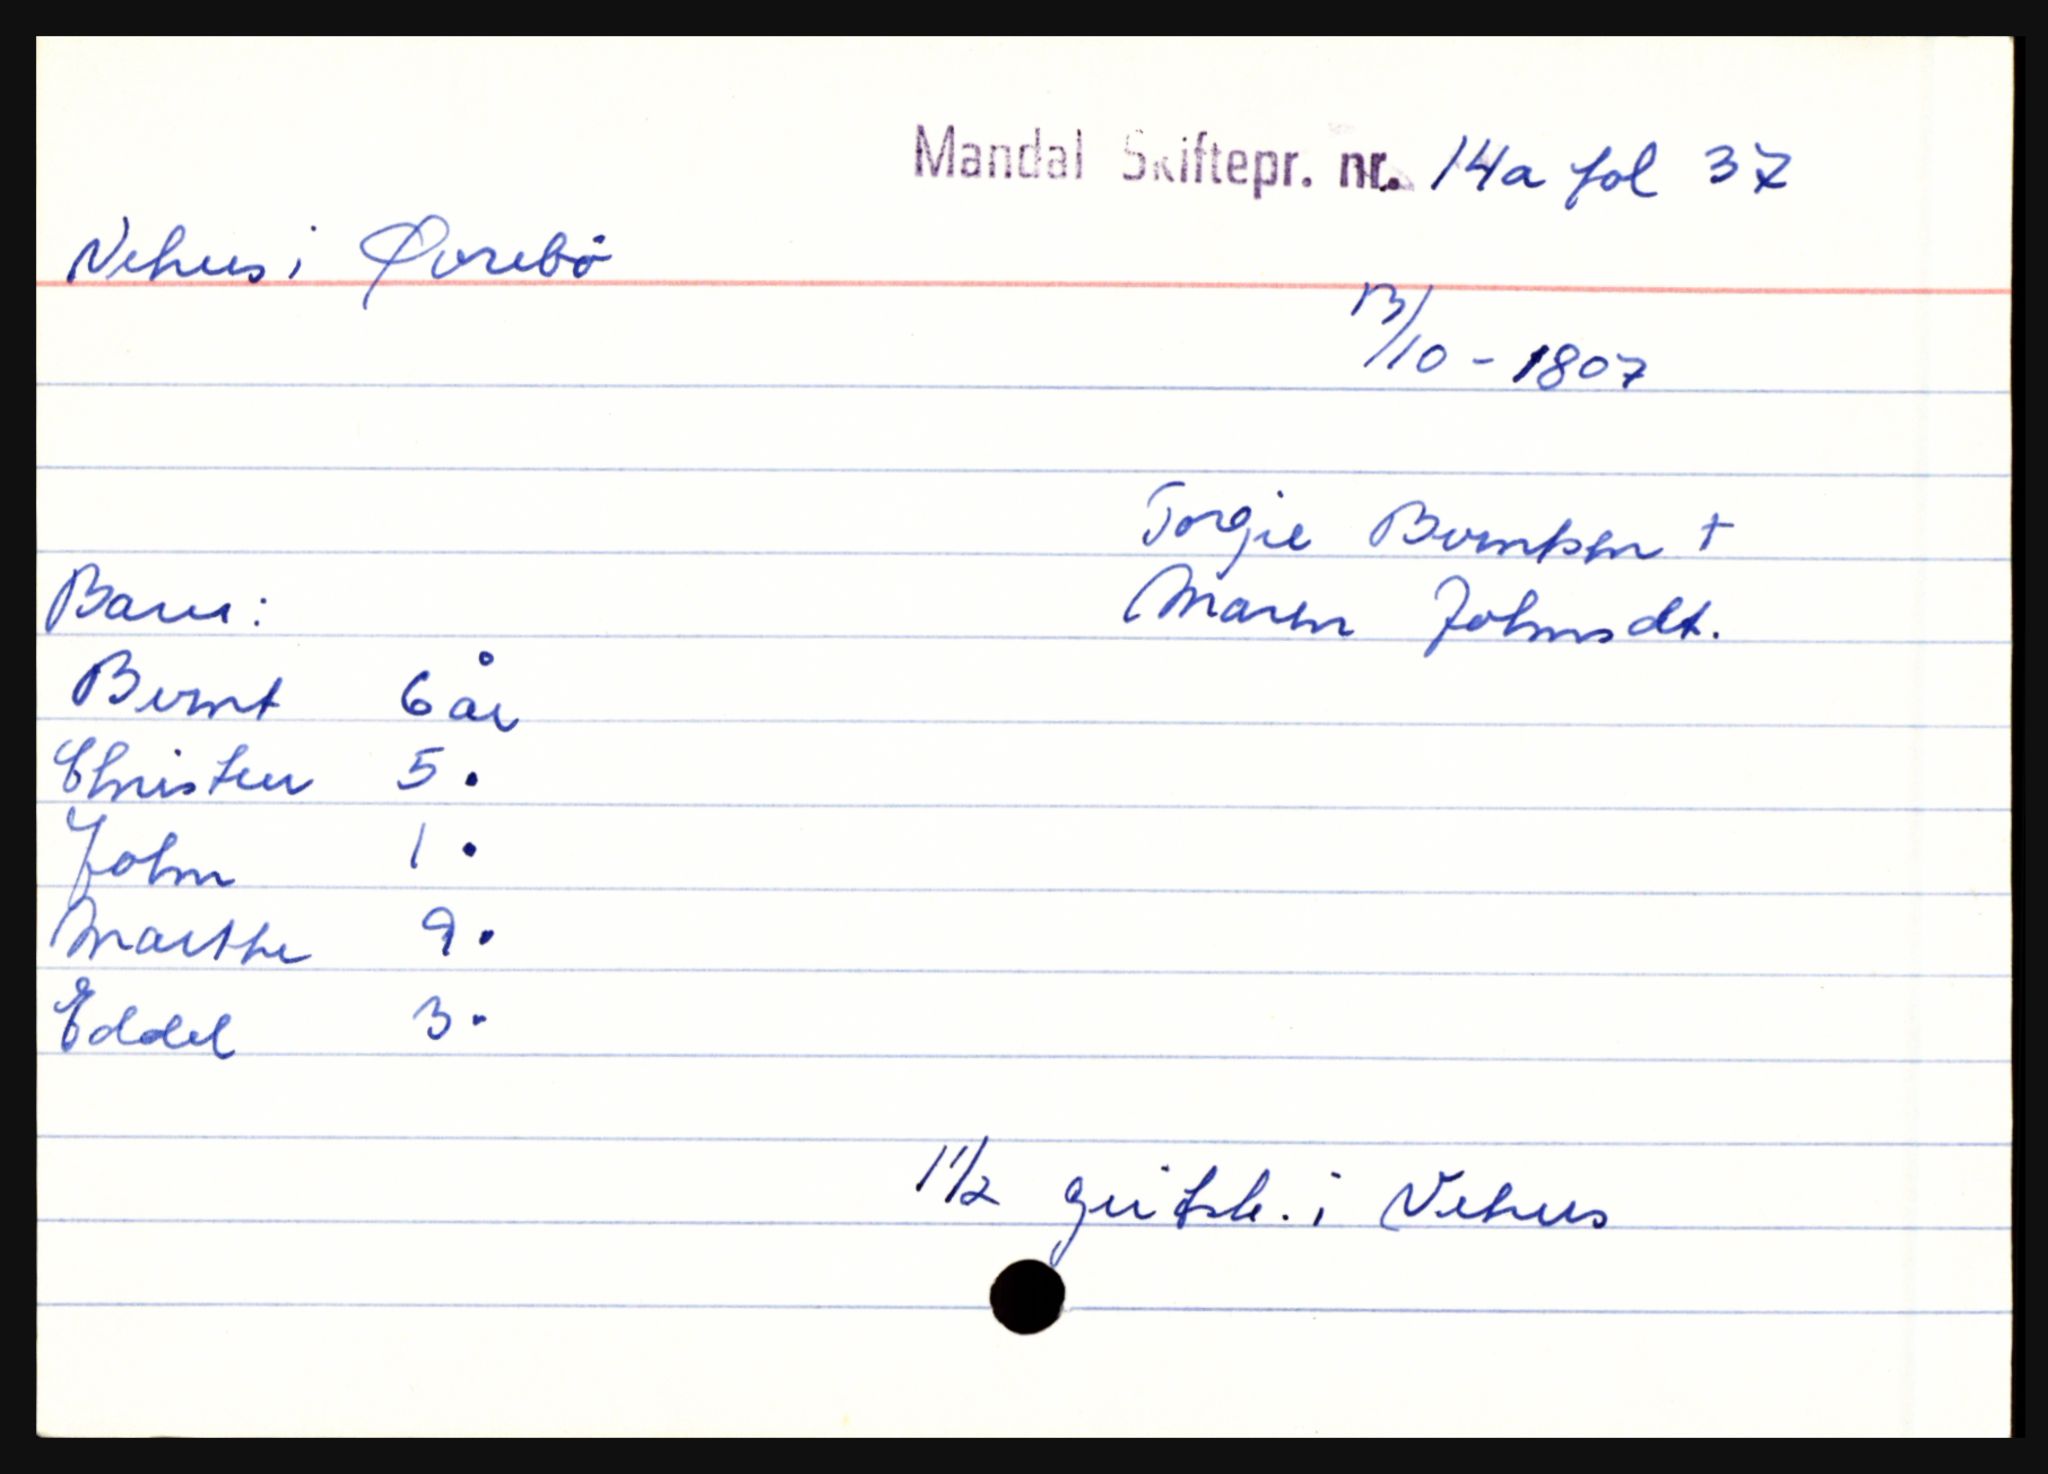 Mandal Skiftepr. nr. 14a fol 37
Vehus i Øvrebö
13/10 - 1807
Torgie Berntsen +
Maren Johnsdt.
Barn:
Bernt 6 år
Christen 5 .
John 1 .
Marthe 9 .
Eddel 3 .
1 1/2 i Vehus